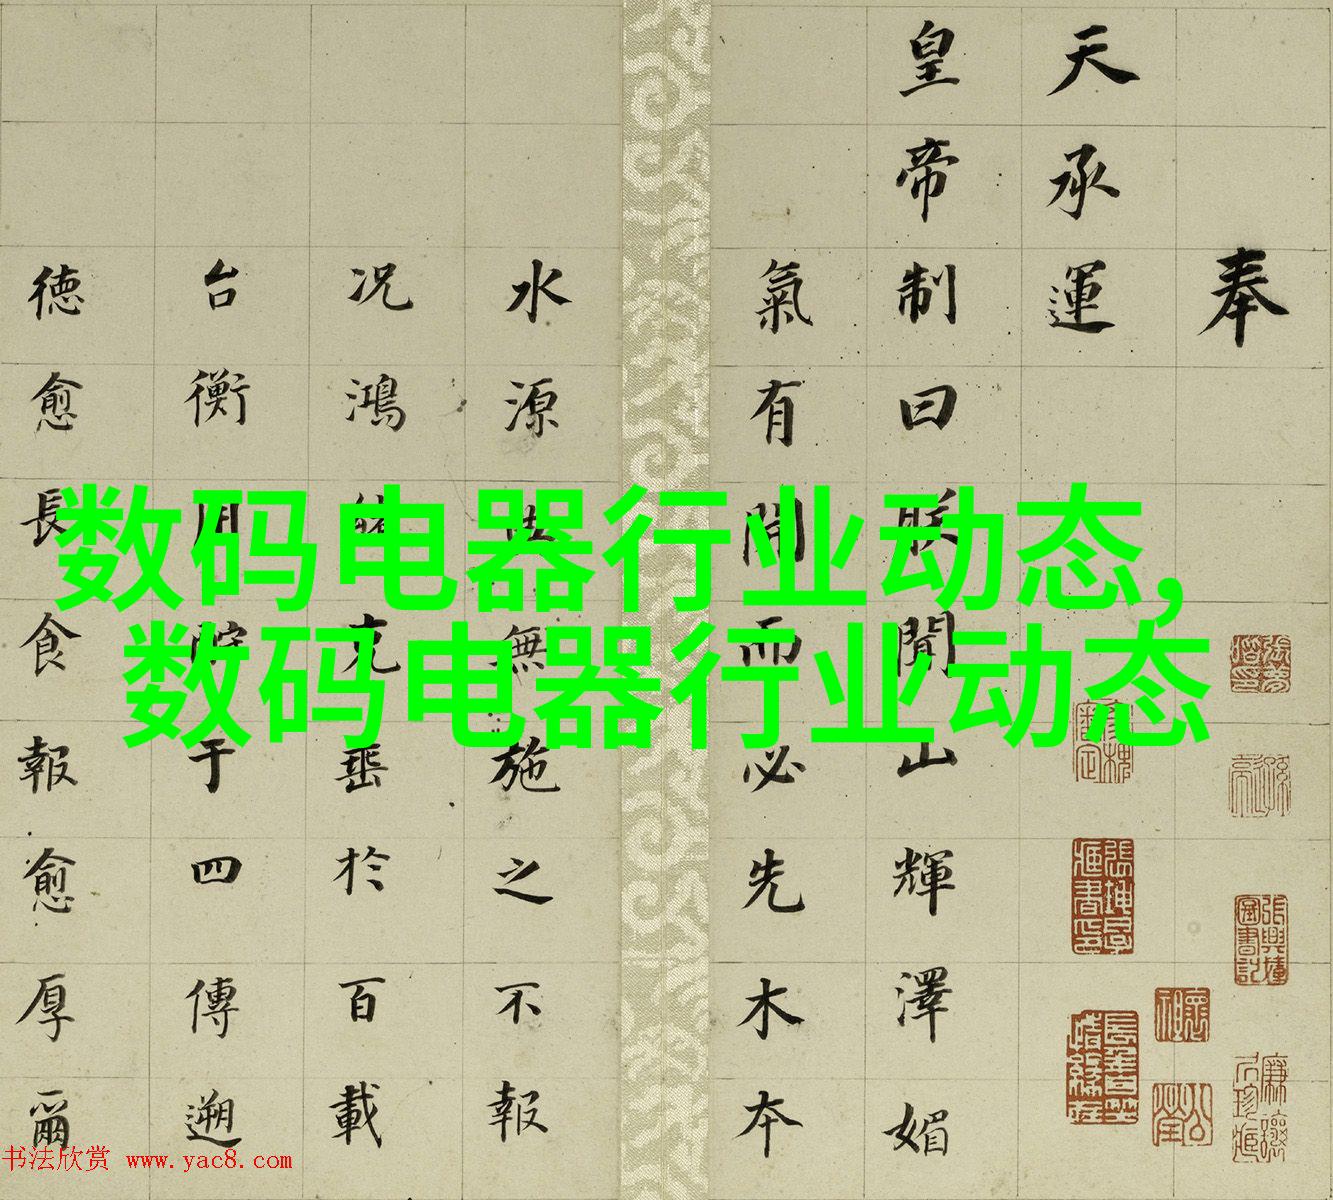 奉
天承運
皇帝制曰朕聞山輝澤媚
氣有開而必先木本
水源無施之不報
况鴻緒克垂於百載
台衡于四傳遡
德愈長食報愈厚爾
数码电器行业动态,
数码电器行业动态
书法欣赏 www.yac8.com